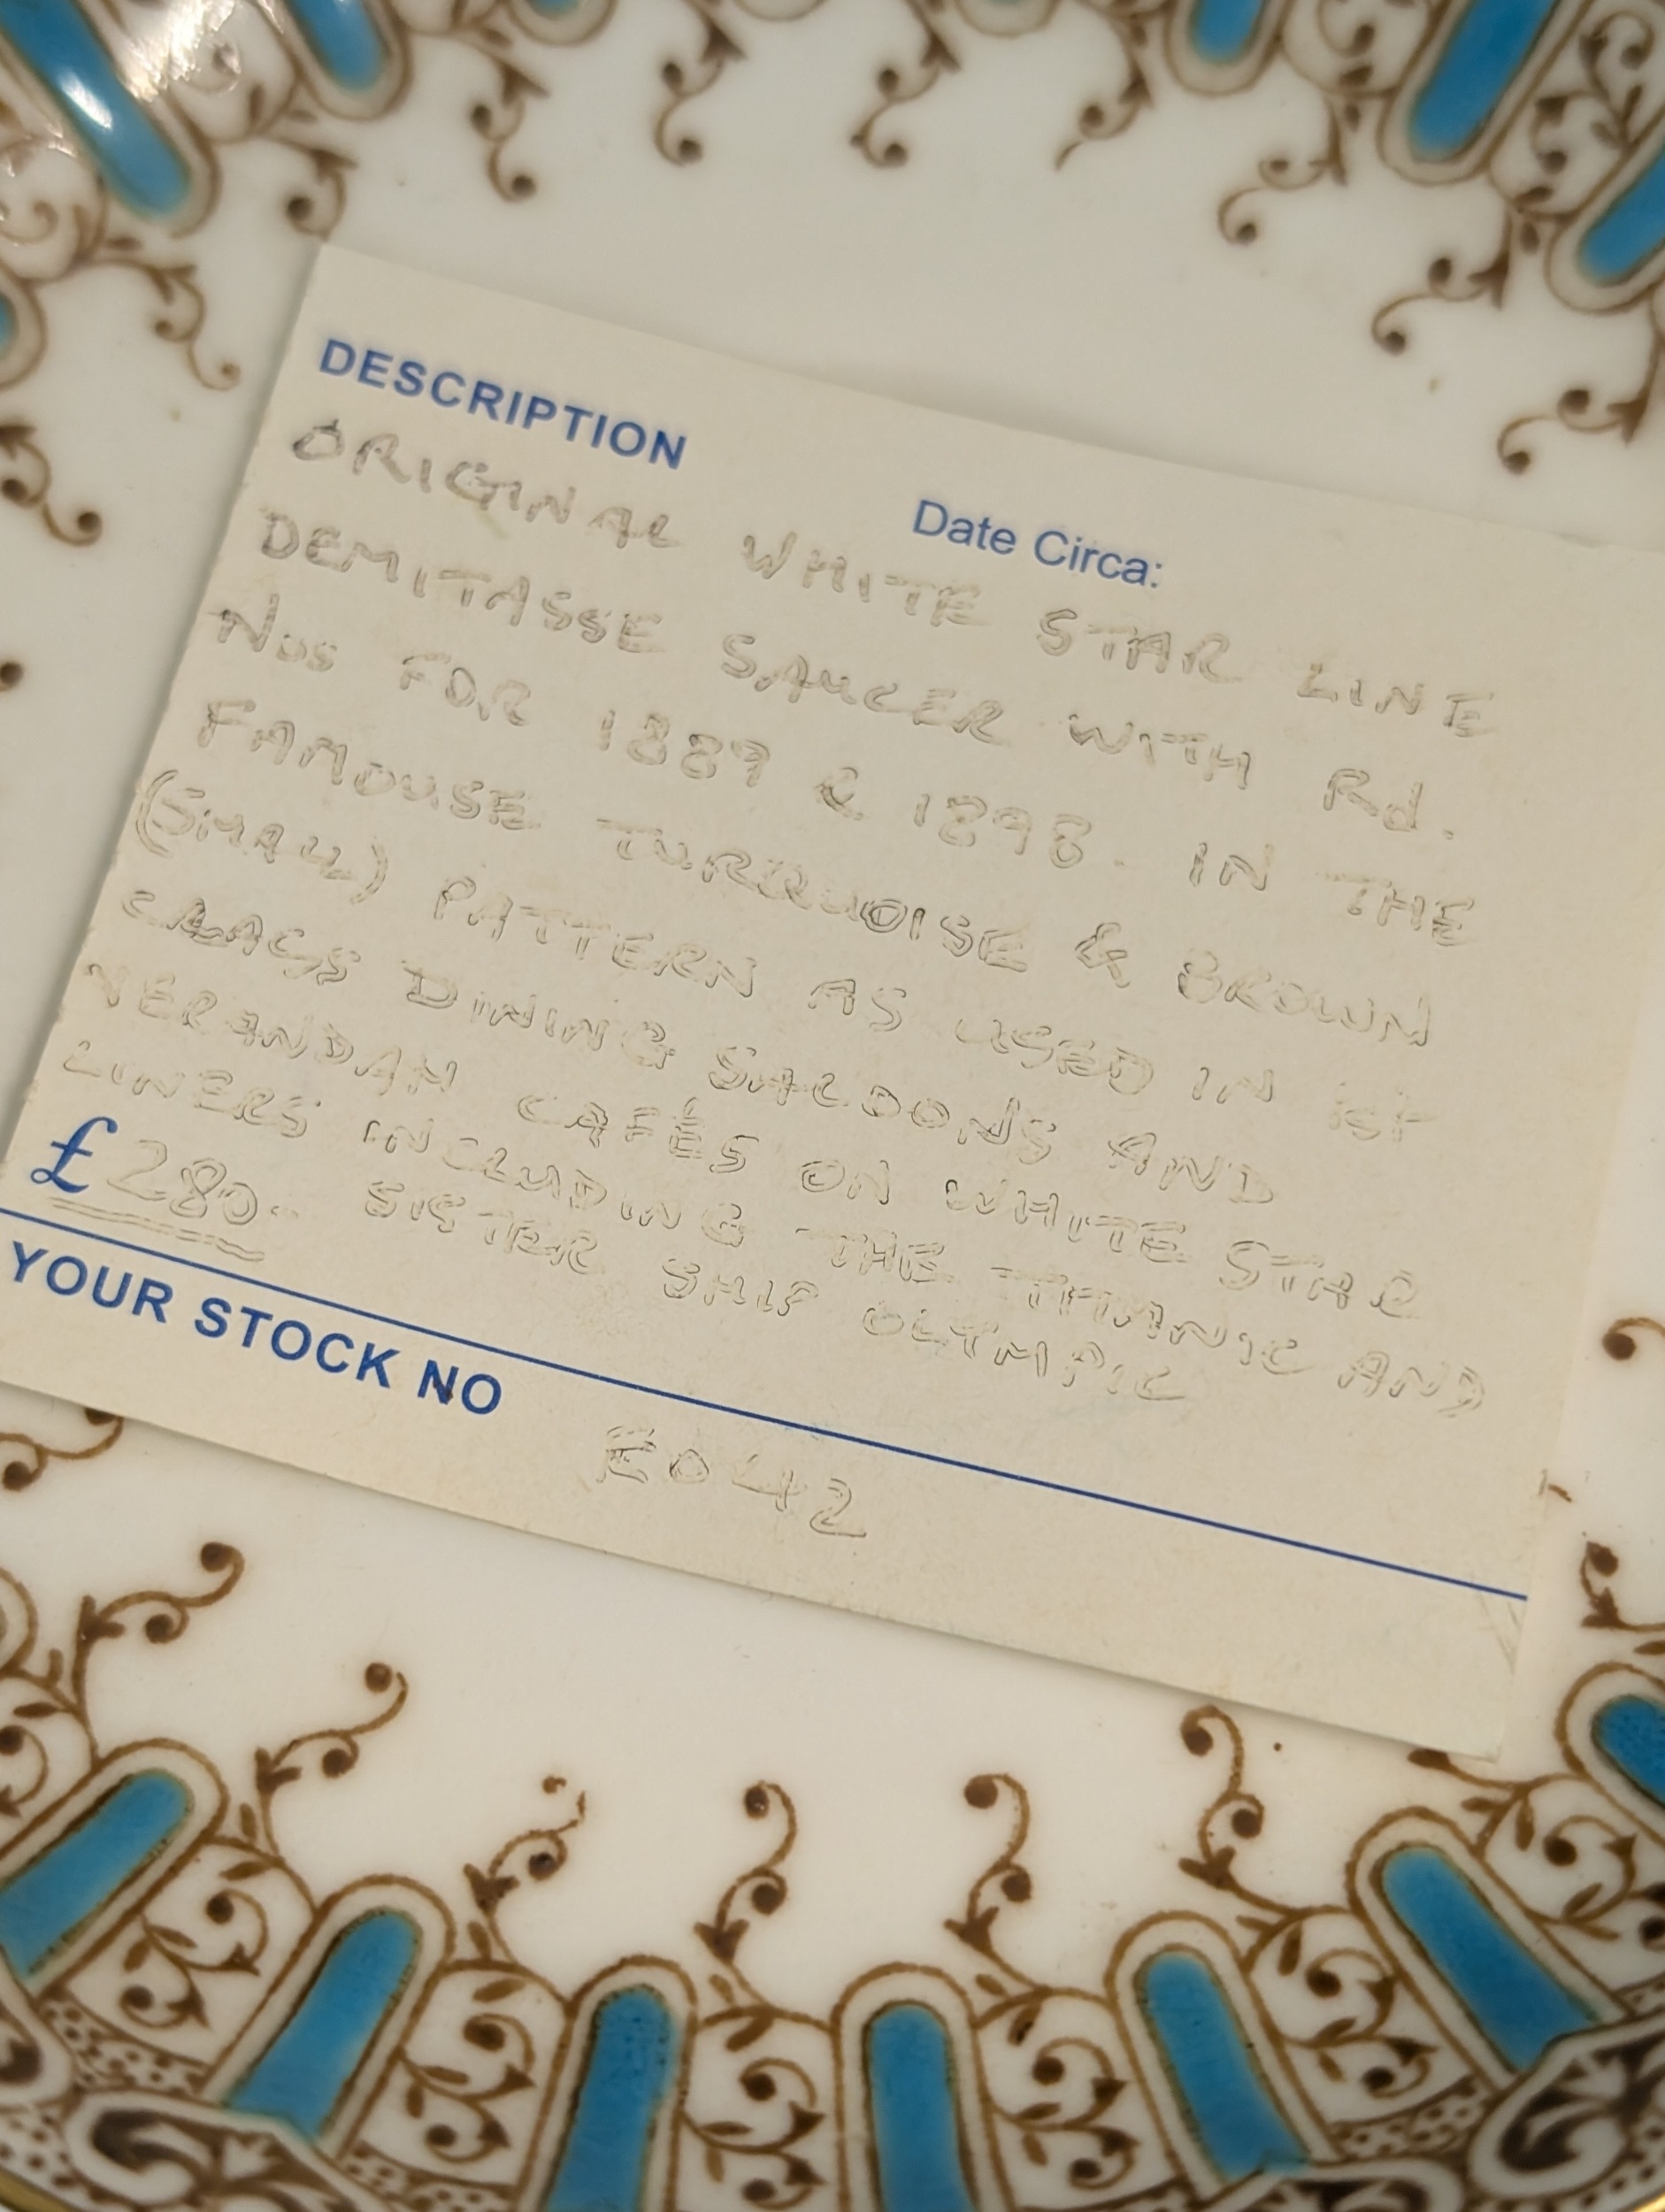 DESCRIPTION
Date Circa:
ORIGINAL WHITE STAR LINE
DEMITASSE SAUCER WITH Rd.
Nos FOR 1889 & 1898. IN THE
FAMOUSE TURQUOISE & BROWN
(SMALL) PATTERN AS USED IN 1st
DINING SALOONS AND
VERANDAH CAFÉS ON WHITE STAR
LINERS INCLUDING THE TITANIC AND
£280.- SISTER SHIP OLYMPIC
YOUR STOCK NO
E042